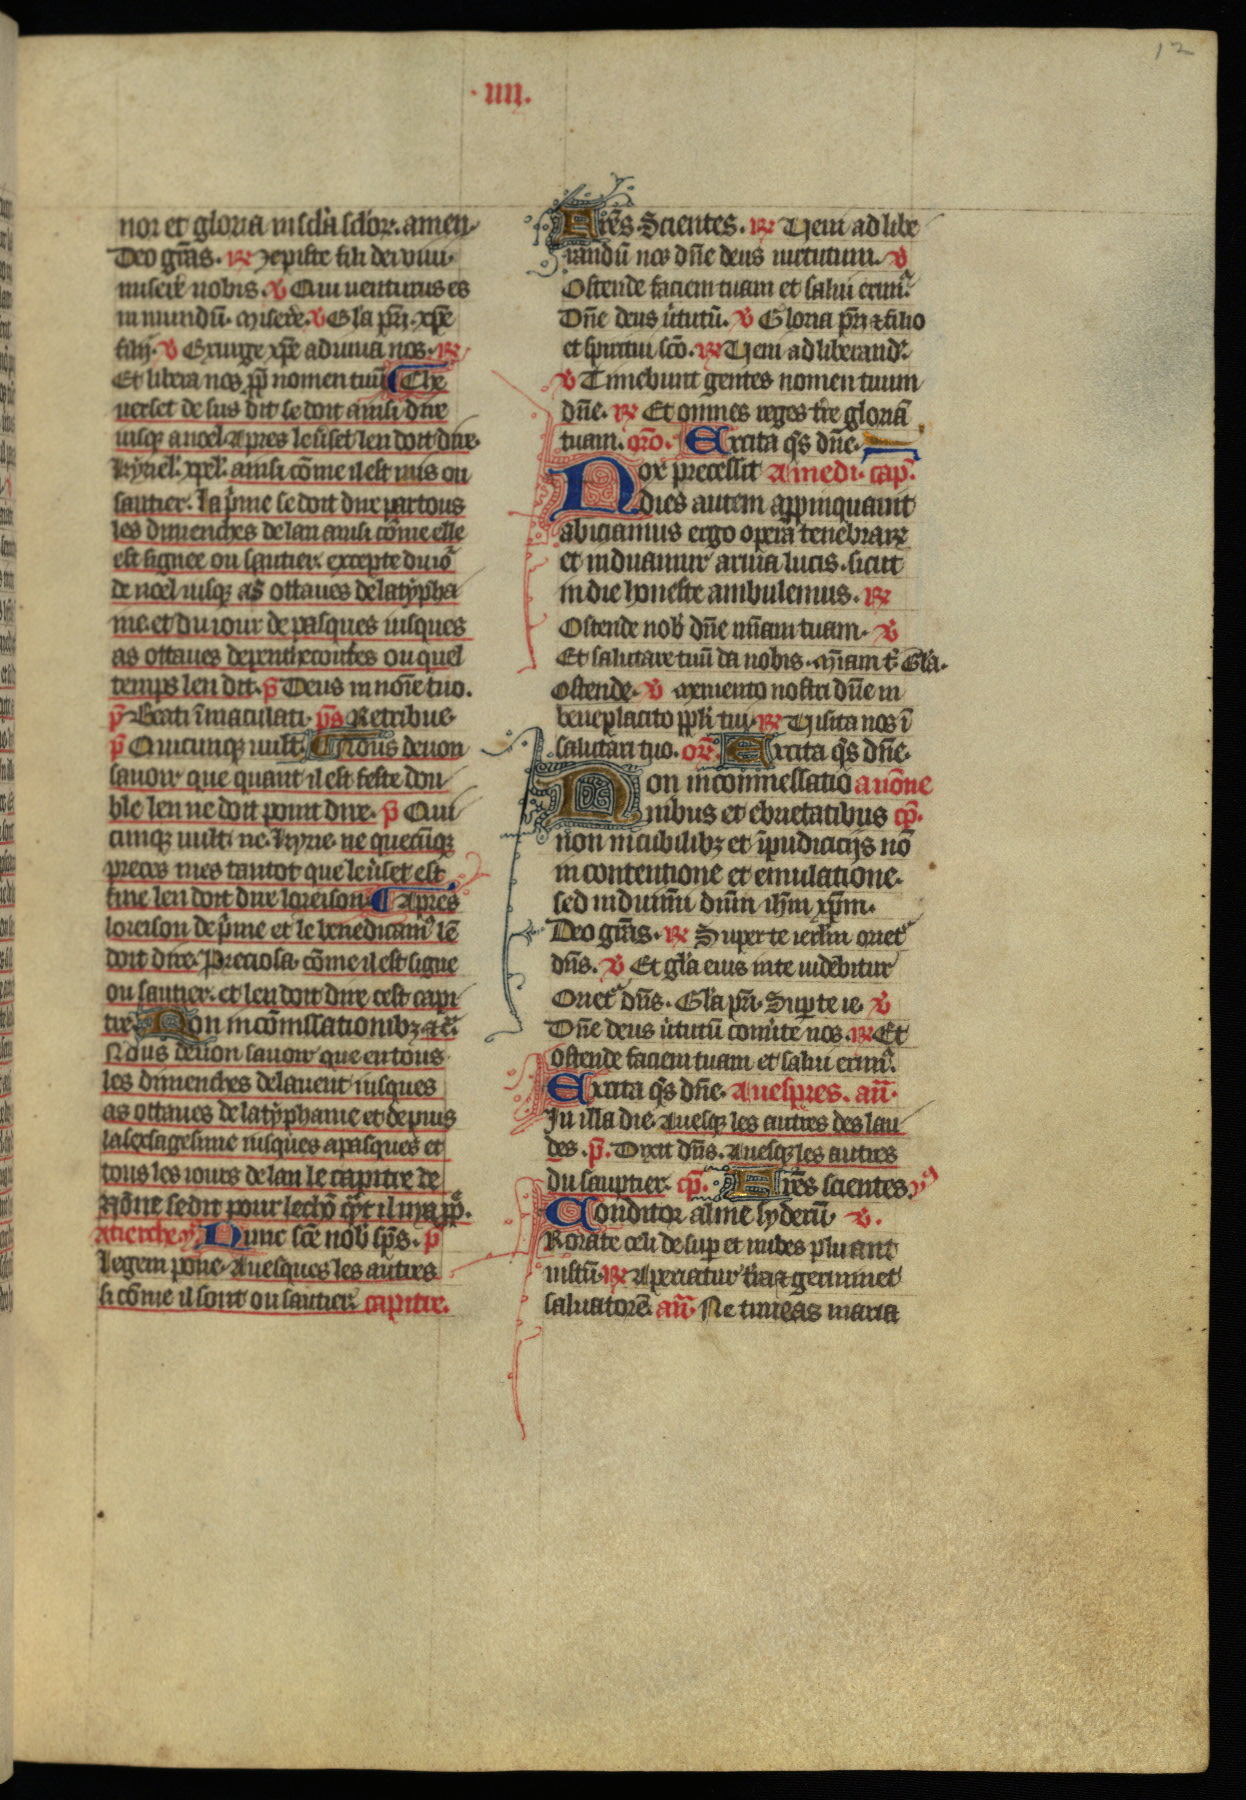 12
.IIII.
nor et gloria in sc̄la sclōꝝ. amen.
Deo gr̄as. ℟ Jepiste fili dei viui.
miserē nobis. ℣ Qui uenturus es
in mundū. Miserē. ℣ Gl̄a pr̄i. xp̄e
filij. ℣ Exurge xp̄e adiuua nos. ℟
Et libera nos ꝓp̄ nomen tuū
uerset de sus dit se doit ainsi dire
iusq̄ a noel. Apres le ūset len doit dire.
kyriel. xpēl. ainsi cōme il est mis ou
sautier. Ja p̄me se doit dire par tous
les dimenches de lan ainsi cōme elle
est signee ou sautier. excepte du iōr
de noel iusq̄ as ottaues de la typha
me. et du iour de pasques iusques
as ottaues de penthecoustes ou quel
temps len dit. p̄ Deus in nōie tuo.
p̄ Beati īmaculati. p̄s Retribue.
p̄ Quicunq̄ uult. Nous deuon
sauoir que quant il est feste dou
ble len ne doit point dire. p̄ Qui
cunq̄ uult. ne. Kyrie. ne quecūq̄
preces mes tantost que le ūset est
fine len doit dire loreison. Apres
loreison de p̄me et le benedicam̄ lē
doit dire. Preciosa. cōme il est signe
ou sautier. et len doit dire cest capi
tre. Non in cōmissationibꝫ. ⁊ c̄.
Nous deuon sauoir que en tous
les dimenches de lauent iusques
as ottaues de la typhanie et depuis
la sexsagesime iusques a pasques et
tous les iours de lan le capitre de
Nōne se dit pour lechō
A tierche. Nunc sc̄e nob̄ sp̄s. p̄
Legem pone. Auesques les autres
si cōme il sont ou sautier. capitre.
Fr̄es. Scientes. ℟ Ueni ad libe
randū nos dn̄e deus uirtutum. ℣
Ostende faciem tuam et salui erimꝰ.
Dn̄e deus ūtutū. ℣ Gloria pr̄i ⁊ filio
et spiritui sc̄o. ℟ Ueni ad liberand̄.
℣ Timebunt gentes nomen tuum
dn̄e. ℟ Et omnes reges tr̄e gloriā
tuam. or̄o. Excita q̄s dn̄e.
Nox precessit A medi. cap̄.
dies autem appinquauit
abiciamus ergo opera tenebraꝝ
et induamur arma lucis. sicut
in die honeste ambulemus. ℟
Ostende nob̄ dn̄e mīam tuam. ℣
Et salutare tuū da nobis. Mīam t̄. Gl̄a.
ostende. ℣ Memento nostri dn̄e in
beneplacito ppl̄i tui. ℟ Uisita nos ī
salutari tuo. or̄. Excita q̄s dn̄e.
Non in commessatio a nōne
nibus et ebrietatibus cp̄.
non in cubilibꝫ et īpudicicijs nō
in contentione et emulatione.
sed induimī dn̄m ih̄m xp̄m.
Deo gr̄as. ℟ Super te ierl̄m orietꝰ
dn̄s. ℣ Et gl̄a eius in te uidebitur
Orietꝰ dn̄s. Gl̄a pr̄i. Sup̄ te ie. ℣
Dn̄e deus ūtutū conūte nos. ℟ Et
ostende faciem tuam et salui erimꝰ.
Excita q̄s dn̄e. A uespres. an̄.
In illa die. Auesq̄ les autres des lau
des. p̄. Dixit dn̄s. Auesq̄ les autres
du sauptier. cp̄. Fr̄es scientes. yꝰ
Conditor alme syderū. ℣.
Rorate celi de sup̄ et nubes pluant
iustū. ℟ Aperiatur t̄ra ⁊ germinet
saluatorē. an̄. Ne timeas maria